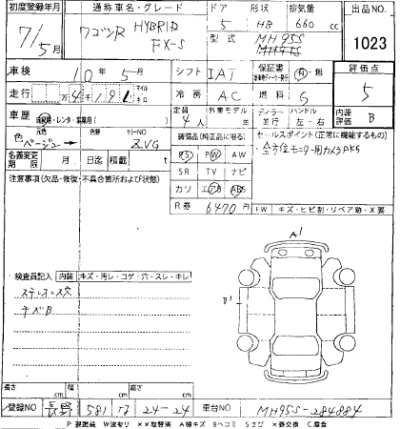 初度登録年月 通称車名・グレード ドア 形状 排気量 出品NO
7/5月 ワゴンR HYBRID FX-S 5 HB 660 cc
型式 MH95S
1023
車検 10年5月 シフト IAT 保証書 有・無 評価点
走行 マイル キロ 冷房 AC 燃料 5
車歴 自家用・レンタ・事業用 定員 4人 外車モデル ディーラー 並行 ハンドル 左・右 内装評価 B
色 元色 色替 カラーNO
ベージュ→ ZVG
装備品(純正品に限る) セールスポイント(正常に機能するもの)
全方位モニター用カメラPKG
PS PW AW
名義変更期限 月 日迄 積載 t
SR TV ナビ
注意事項(欠品・修復・不具合箇所および状態)
カワ エアB ABS
R券 6470円
FW キズ・ヒビ割・リペア跡・X要
A1
検査員記入 内装 キズ・汚レ・コゲ・穴・スレ・キレ
長さ cm 幅 cm 高さ cm
登録NO 長野 581 24-24 車台NO MH95S-284884